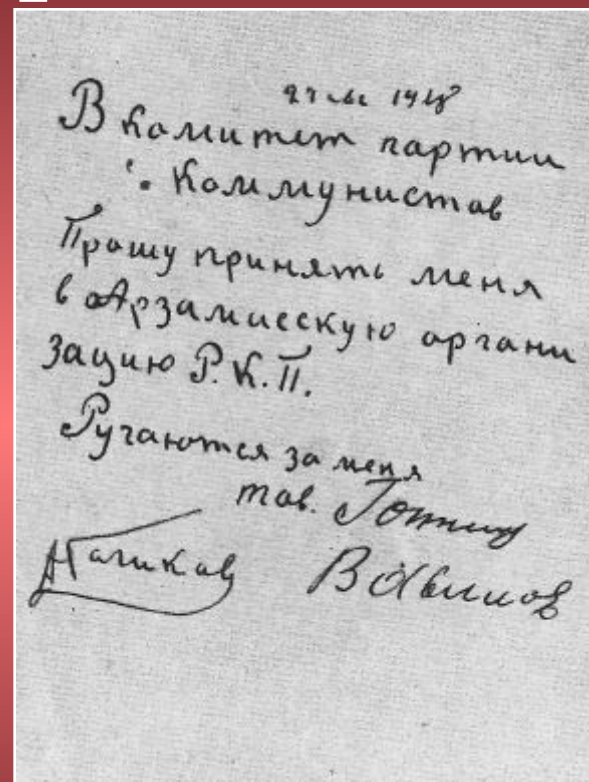 27 1918
В Комитет партии
Коммунистов
Прошу принять меня
в Арзамасскую органи
зацию Р.К.П.
Ручаются за меня
тов. Гоппиус
АГоликов Вавилов